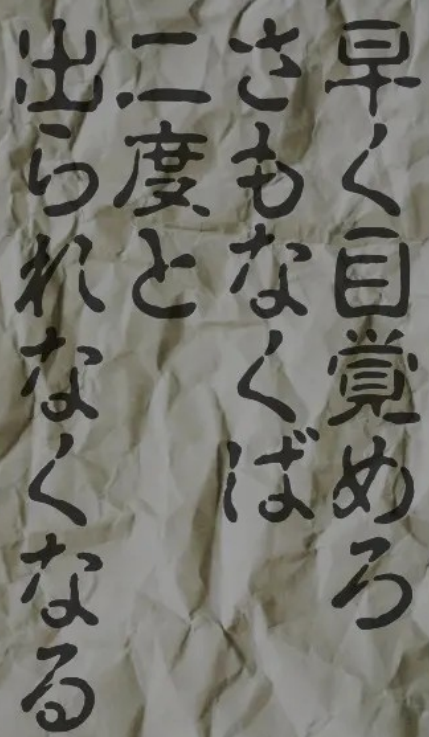 早く目覚めろ
さもなくば
二度と
出られなくなる